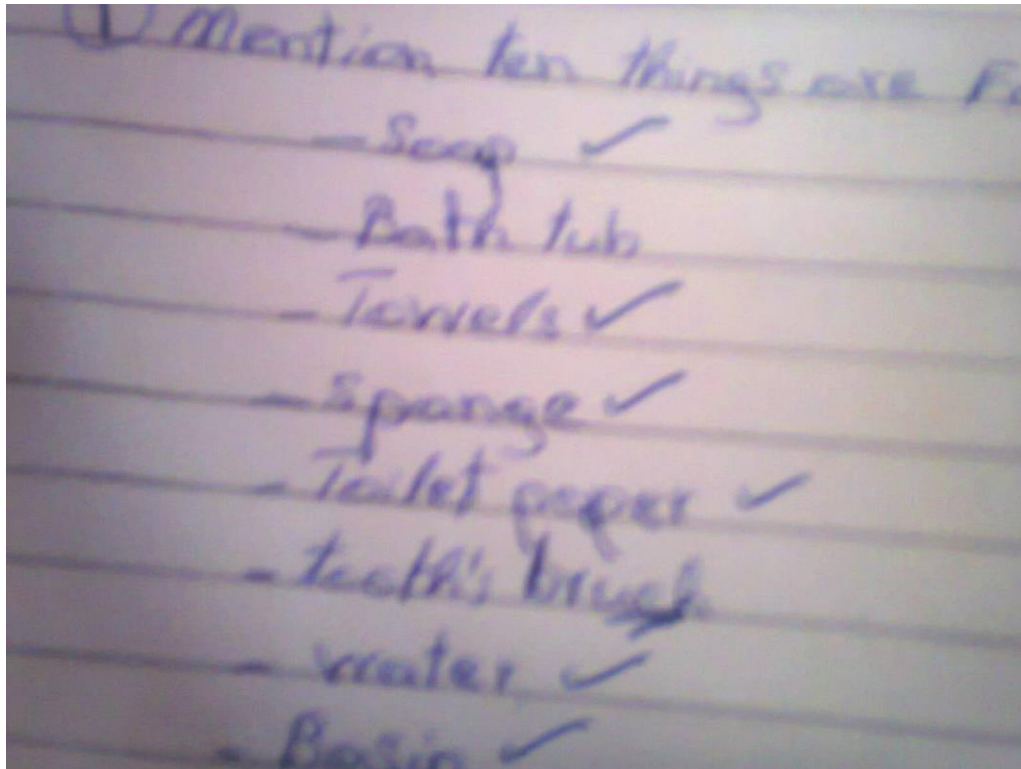 ① Mention ten things are Fo
- Soap ✓
- Bath tub
- Towels ✓
- Sponge ✓
- Toilet peper ✓
- teeth's brush
- water ✓
- Basin ✓